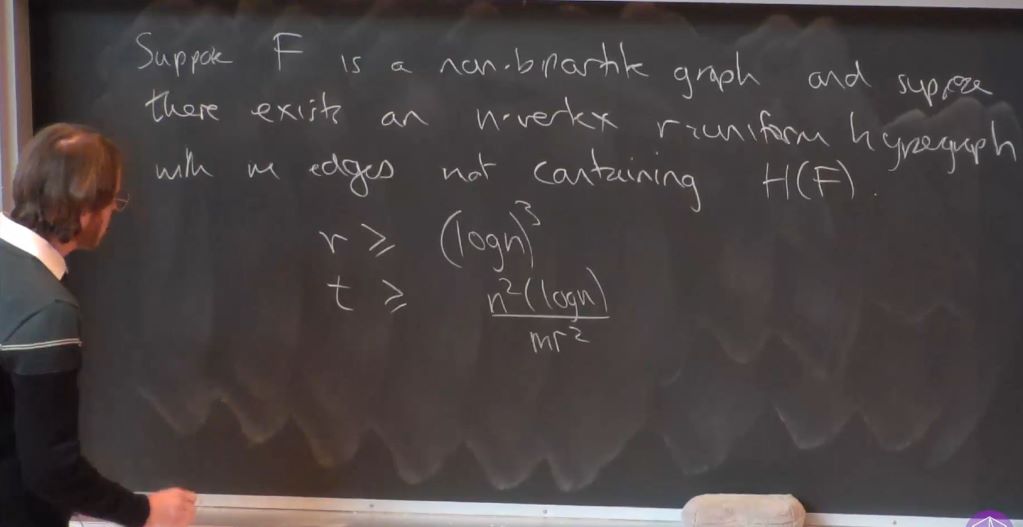 Suppose F is a non-bipartite graph and suppose
there exists an n-vertex r-uniform hypergraph
with m edges not containing H(F).
r ≥ (log n)^3
t ≥ n^2(log n) / mr^2